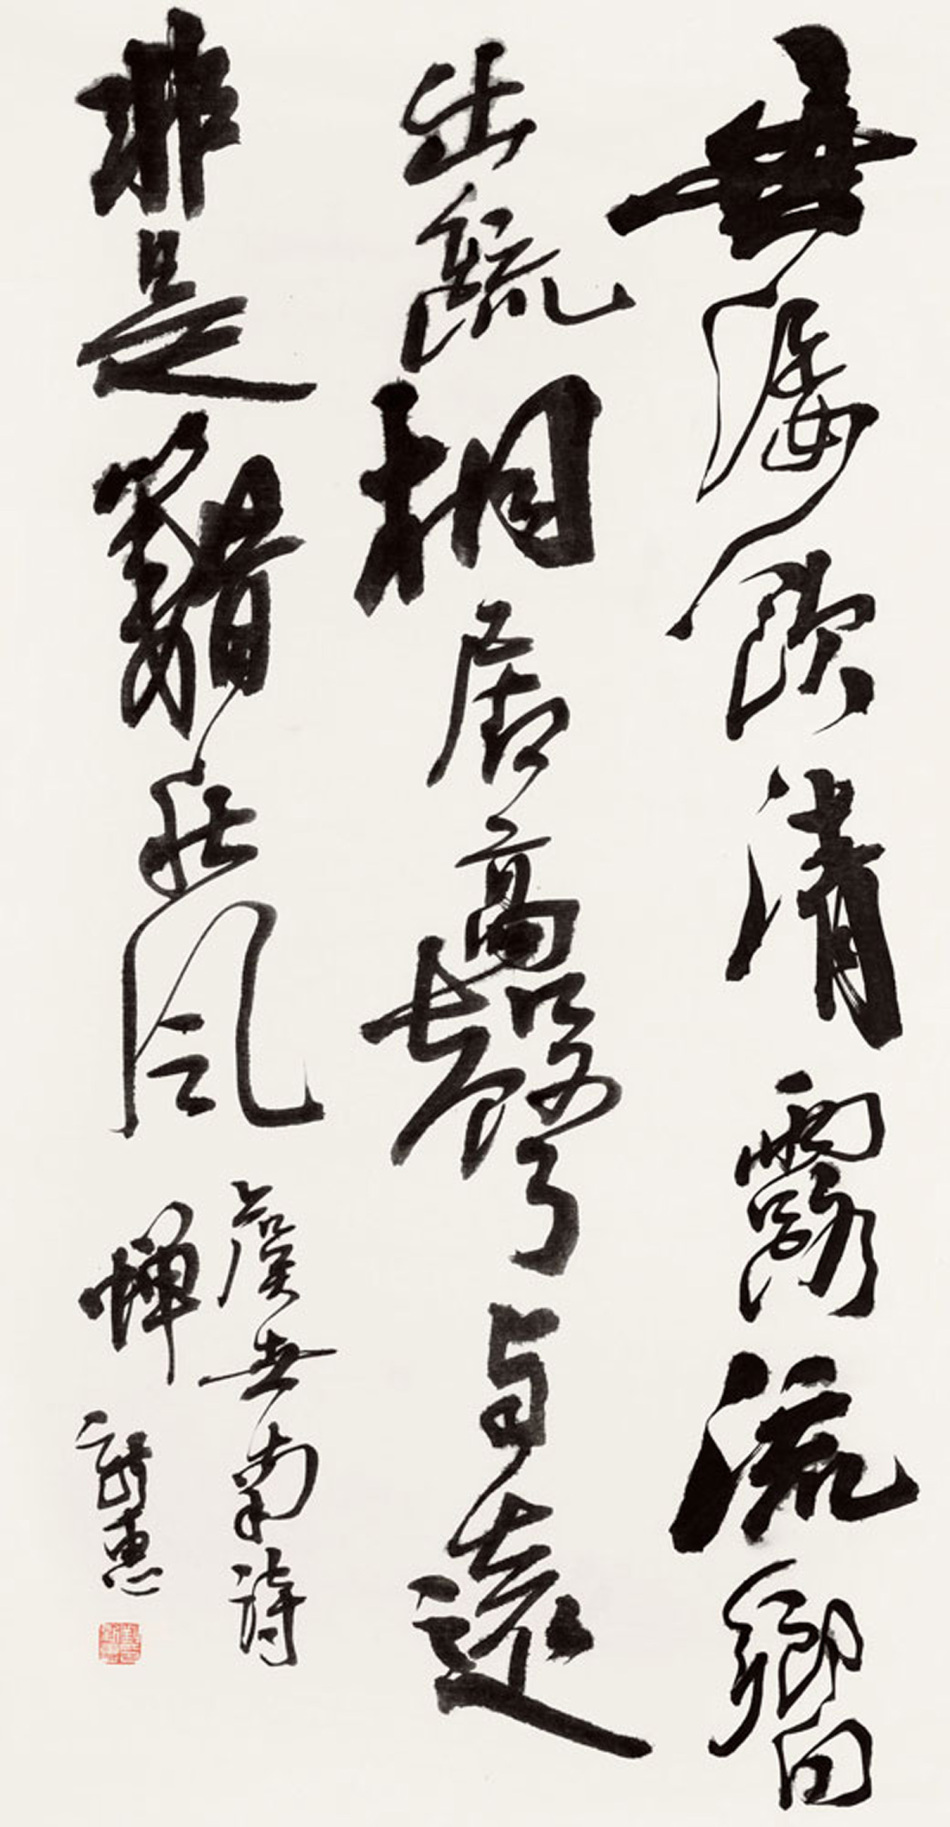 垂緌飲清露流響
出疏桐居高聲自遠
非是藉秋風
虞世南詩
蝉 惠